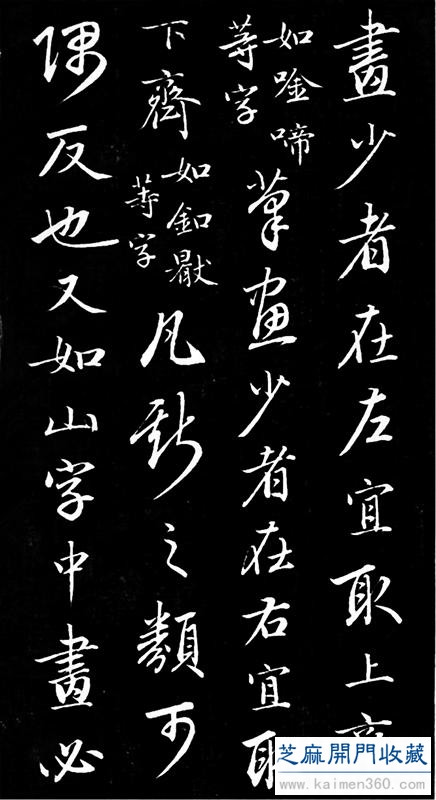 畫少者在左宜取上齊
如唫啼
等字
筆畫少者在右宜取
下齊
如釦
等字
凡斯之類可
隅反也又如山字中畫必
芝麻開門收藏
www.kaimen360.com